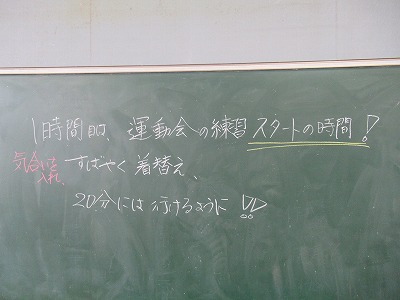 1時間目、運動会の練習スタートの時間!
気合いを
入れ、
すばやく着替え、
20分には行けるように!!